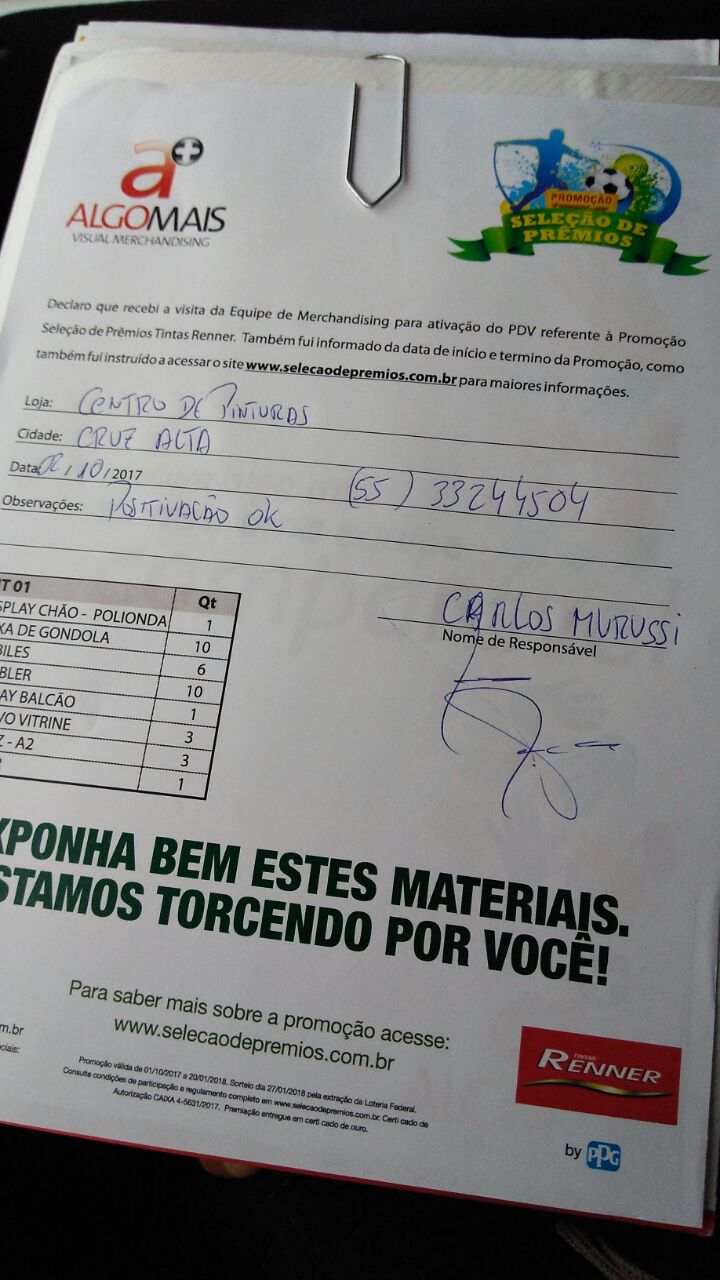 a+
ALGOMAIS
VISUAL MERCHANDISING
PROMOÇÃO
SELEÇÃO DE
PRÊMIOS
Declaro que recebi a visita da Equipe de Merchandising para ativação do PDV referente à Promoção
Seleção de Prêmios Tintas Renner. Também fui informado da data de início e termino da Promoção, como
também fui instruído a acessar o site www.selecaodepremios.com.br para maiores informações.
Loja: CENTRO DE PINTURAS
Cidade: CRUZ ALTA
Data: /10/2017 (55) 33244504
Observações: POSITIVAÇÃO OK
IT 01 Qt
SPLAY CHÃO - POLIONDA 1
XA DE GONDOLA 10
BILES 6
BLER 10
AY BALCÃO 1
VO VITRINE 3
Z - A2 3
1
CARLOS MURUSSI
Nome de Responsável
XPONHA BEM ESTES MATERIAIS.
STAMOS TORCENDO POR VOCÊ!
Para saber mais sobre a promoção acesse:
www.selecaodepremios.com.br
m.br
ciais:
Promoção válida de 01/10/2017 a 20/01/2018. Sorteio dia 27/01/2018 pela extração da Loteria Federal.
Consulte condições de participação e regulamento completo em www.selecaodepremios.com.br. Certi cado de
Autorização CAIXA 4-5631/2017. Premiação entregue em certi cado de ouro.
TINTAS
RENNER
by PPG